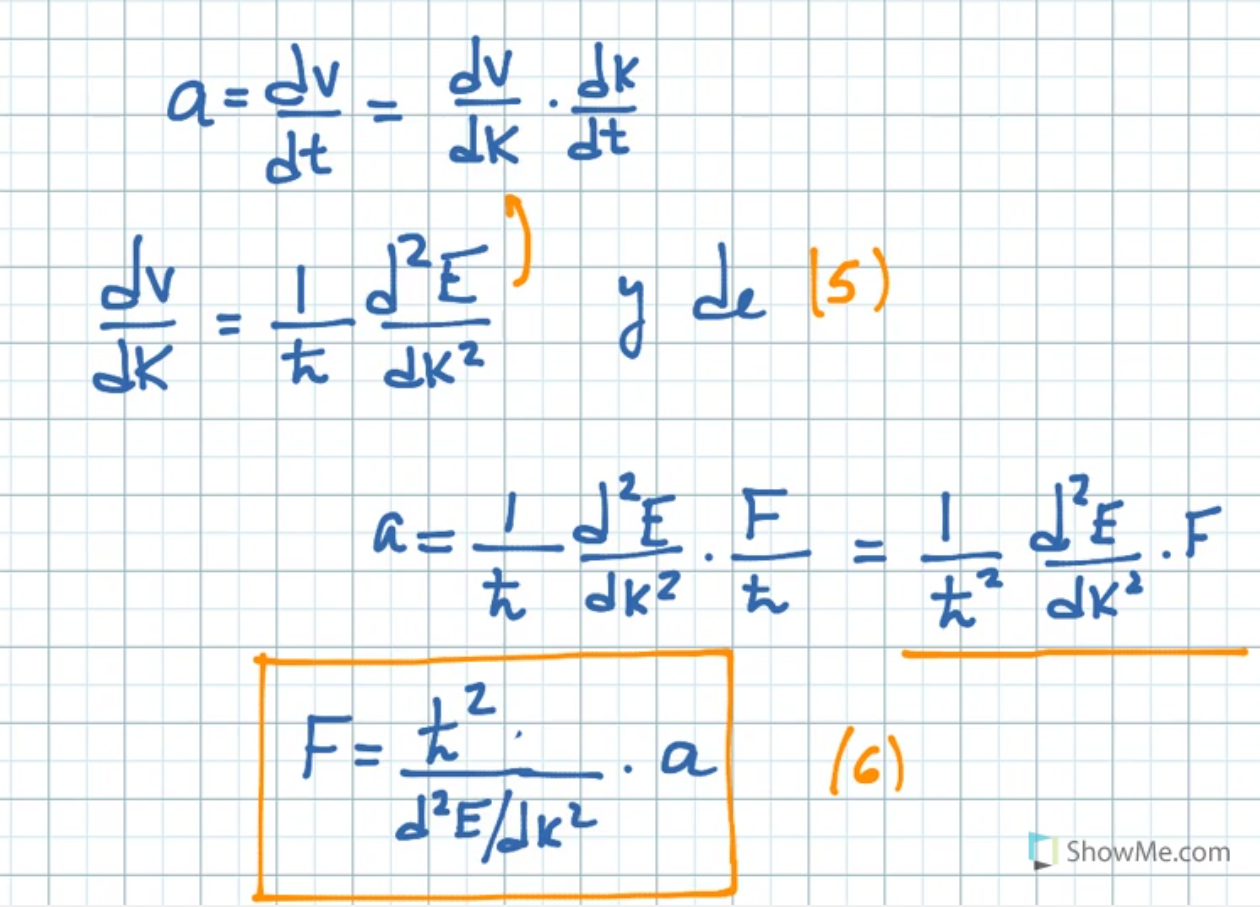 a = dv/dt = dv/dK · dk/dt
dv/dK = 1/ħ d²E/dK² y de (5)
a = 1/ħ d²E/dK² · F/ħ = 1/ħ² d²E/dK² · F
F = ħ²/(d²E/dK²) · a (6)
ShowMe.com